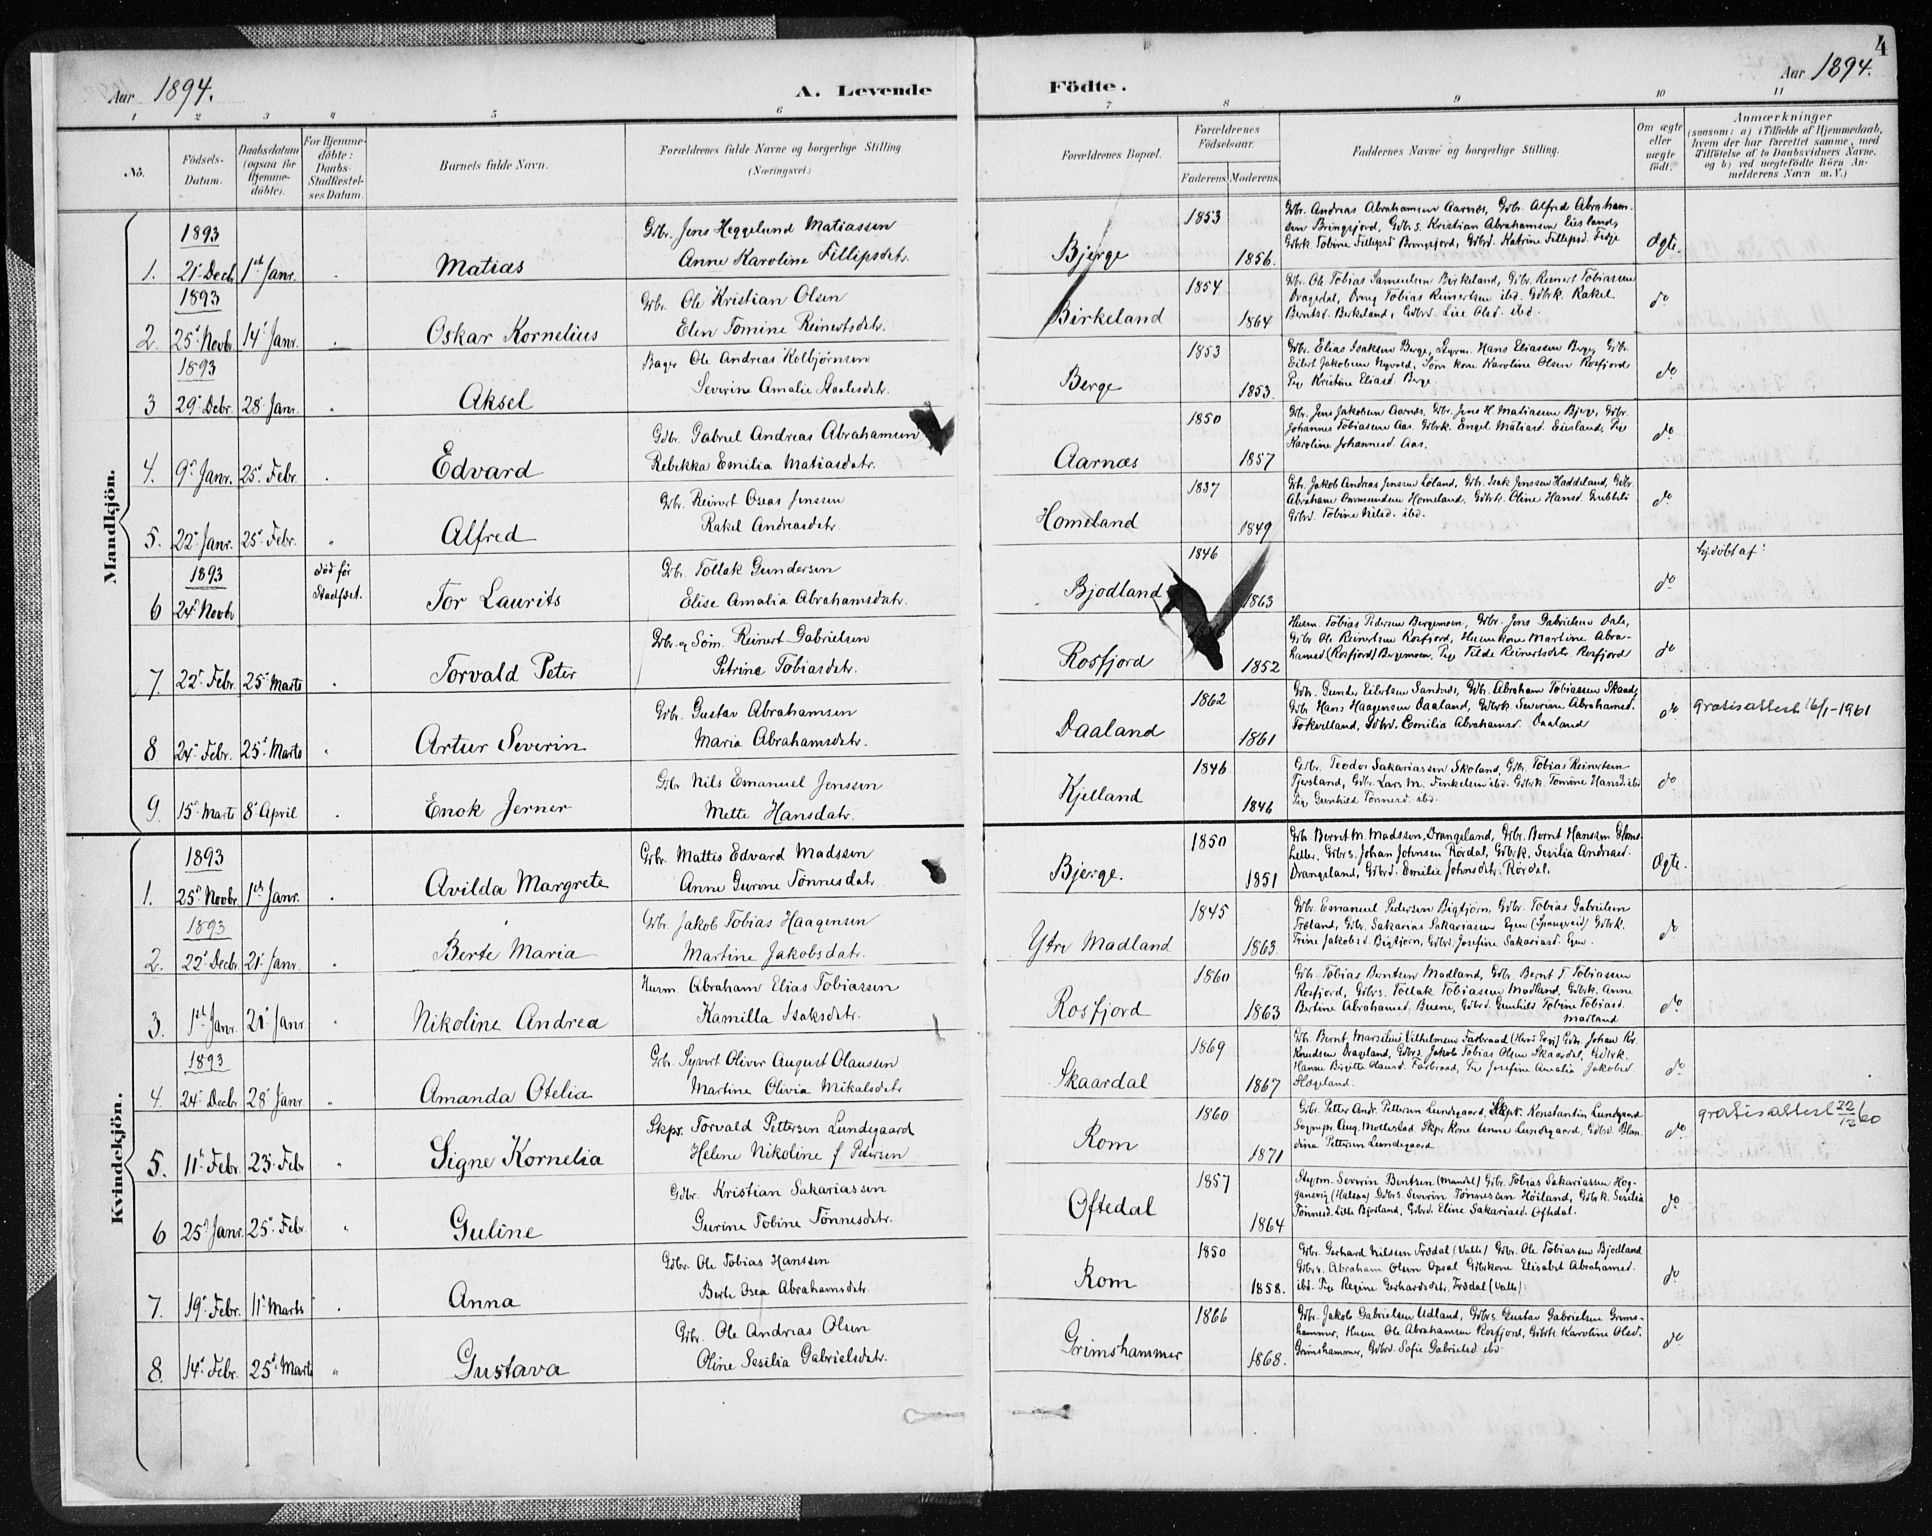 4
Aar 1894. A. Levende Födte. Aar 1894.
1 2 3 4 5 6 7 8 9 10 11
No. Födsels-Datum. Daabsdatum (ogsaa för Hjemme-döbte). For Hjemme-döbte: Daabs-Stadfæstel-ses Datum. Barnets fulde Navn. Forældrenes fulde Navne og borgerlige Stilling (Næringsvei.) Forældrenes Bopæl. Forældrenes Födselsaar. Faderens. Moderens. Faddernes Navne og borgerlige Stilling. Om ægte eller uægte födt. Anmærkninger (saasom: a) i Tilfælde af Hjemmedaab, hvem der har forrettet samme, med Tilföielse af to Daabsvidners Navne, og b) ved uægtefödte Börn An-melderens Navn m. V.)
Mandkjön.
1893
1. 21' Decb. 1st Janr. Matias
Gbr. Jens Heggelund Matiassen
Anne Karoline Fillipsdatr.
Bjerge 1853 1856.
Gbr. Andreas Abrahamsen Aarnæs, Gbr. Alfred Abraham-
sen Bringsjord, Gdbrs. Kristian Abrahamsen Eiesland,
Gdbrk. Tobine Fillipsd Bringsjord, Gdbrd. Katrine Fillipsd. Fedje
Ægte.
1893
2. 25' Novbr. 14' Janr. Oskar Kornelius
Gbr. Ole Kristian Olsen
Elen Tomine Reinertsdatr.
Birkeland 1854 1864
Gbr. Ole Tobias Samuelsen Birkeland, Gbr. Reinert Tobiassen
Dragedal, Dreng Tobias Reinertsen ibd. Gdbrk. Rakel
Berntsd. Birkeland, Gdbrd. Lise Olsd. ibd.
do
1893
3 29' Debr. 28' Janr. Aksel
Bager Ole Andreas Kolbjørnsen
Severine Amalie Staalesdatr.
Berge 1853 1853.
Gdbr. Elias Isaksen Berge, Styrm. Hans Eliassen Berge, Gbr.
Eilert Jakobsen Nygvold, Søm. kone Karoline Olsen Rosfjord
Pige Kristine Eliasd. Berge.
do
4. 9' Janr. 25' Febr. Edvard
Gdbr. Gabriel Andreas Abrahamsen
Rebekka Emilia Matiasdatr.
Aarnæs 1850 1857
Gbr. Jens Jakobsen Aarnæs, Gbr. Jens H. Matiassen Bjerge, Gdbr.
Johannes Tobiassen Aas. Gdbrk. Engel Matiasd. Eiesland, Pige
Karoline Johannesd. Aas.
do
5. 22' Janr. 25' Febr. Alfred
Gbr. Reinert Oseas Jensen
Rakel Andreasdatr.
Homeland 1837 1849
Gbr. Jakob Andreas Jensen Løland, Gbr. Isak Jensen Haddeland, Gdbr.
Abraham Ommundsen Homeland, Gdbrk. Oline Hansd.
Gdbrd. Tobine Nilsd. ibd.
do
1893
6 24' Novbr død før Stadfæst. Tor Laurits
Gbr. Tollak Gundersen
Elise Amalia Abrahamsdatr.
Bjodland 1846 1863
do
hj.døbt af:
7. 22' Febr. 25' Marts Torvald Peter
Gbr. og Søm. Reinert Gabrielsen
Petrine Tobiasdatr.
Rosfjord 1852
Husm. Tobias Pedersen Bergemoen, Gdbr. Jens Gabrielsen Dale,
Gbr. Ole Reinertsen Rosfjord, Husm.kone Martine Abra-
hamsd. (Rosfjord) Bergemoen, Pige Tilde Reinertsdatr. Rosfjord
do
8 24' Febr. 25' Marts Artur Severin
Gbr. Gustav Abrahamsen
Maria Abrahamsdatr.
Daaland 1862 1861
Gbr. Gunder Eilertsen Sandnes, Gbr. Abraham Tobiassen Skaad,
Gbr. Hans Haagensen Daaland, Gdbrk. Severine Abrahamsd.
Torkelland, Gdbrd. Emilia Abrahamsd. Daaland
do
gratisattest 16/1-1961
9. 15' Marts 8' April Enok Jerner
Gbr. Nils Emanuel Jenssen
Mette Hansdatr.
Kjelland 1846 1846
Gdbr. Teodor Sakariassen Skoland, Gdbr. Tobias Reinertsen
Tjersland, Gdbr. Lars M. Finkelsen ibd. Gdbrk. Tomine Hansd. ibd.
Pige Gunhild Tønnesd. ibd.
do
Kvindekjön.
1893
1. 25' Novbr. 1st Janr. Avilda Margrete
Gbr. Mattis Edvard Madssen
Anne Gurine Tönnesdatr.
Bjerge. 1850 1851
Gbr. Bernt M. Madssen, Drangeland, Gbr. Bernt Hanssen Gloms-
heller, Gdbrs. Johan Johnsen Rördal, Gdbrk. Sesilia Andreasd.
Drangeland, Gdbrd. Emilie Johnsdatr. Rördal.
Ægte.
1893
2. 22' Decbr. 21' Janr. Berte Maria
Gbr. Jakob Tobias Haagensen
Martine Jakobsdatr.
Ytre Madland 1845 1863.
Gdbr. Emanuel Pedersen Bigtjörn, Gdbr. Tobias Gabrielsen
Træland, Gdbr. Sakarias Sakariassen Egen (Spangereid) Gdbrk.
Trine Jakobsd. Bigtjörn, Gdbrd. Josefine Sakariasd. Egen.
do
3. 1st Janr. 21' Janr. Nikoline Andrea
Husm Abraham Elias Tobiassen
Kamilla Isaksdatr.
Rosfjord 1860 1863
Gbr. Tobias Berntsen Madland, Gdbr. Bernt T. Tobiassen
Rosfjord, Gdbrs. Tollak Tobiassen Madland, Gdbrk. Anne
Bertine Abrahamsd. Buene, Gdbrd. Gunhild Tobine Tobiasd.
Madland
do
1893
4. 24' Decbr 28' Janr Amanda Otelia
Gbr. Syvert Oliver August Olaussen
Martine Olivia Mikalsdatr
Skaardal 1869 1867
Gbr. Bernt Marselius Vilhelmsen Farbraad Gdbr. Johan Kr.
Knudsen Drageland, Gdbrs. Jakob Tobias Olsen Skaardal, Gdbrk.
Hanne Birgitte Hansd. Farbraad, Pige Josefine Amalia Jakobsd
Slægeland.
do
5. 11' Febr. 23' Febr Signe Kornelia
Skpr. Torvald Pettersen Lundegaard
Helene Nikoline f Petersen
Rom 1860 1871
Gbr. Petter Andr. Pettersen Lundegaard, Skpr. Konstantin Lundegaard
Sognepr. Aug. Mollestad Skpr. kone Anne Lundegaard, Gdbrd. Blan-
dina Pettersen Lundegaard
do.
gratisattest 22/12 60
6 25' Janr. 25' Febr. Guline
Gdbr. Kristian Sakariassen
Gurine Tobine Tönnesdatr.
Oftedal 1857 1864
Styrm. Severin Bentsen (Mandal) Gdbr. Tobias Sakariassen Hog-
ganvig (Halsaa) Gdbrs. Severin Tønnessen Høiland, Gdbrk. Sesilia
Tönnesd. Lille Bjorland, Gdbrd. Eline Sakariasd. Oftedal.
do
7. 19' Febr. 11' Marts Anna
Gdbr. Ole Tobias Hanssen
Berte Osea Abrahamsdatr.
Rom 1850 1858.
Gdbr. Gerhard Nilssen Trædal (Valle) Gdbr. Ole Tobiassen Bjodland
Gdbrs. Abraham Olsen Opsal Gdbrkone Elisabet Abrahamsd.
ibd. Pige Regine Gerhardsdatr. Trædal (Valle).
do
8. 14' Febr. 25' Marts Gustava
Gdbr. Ole Andreas Olsen
Oline Sesilia Gabrielsdatr.
Grimshammer 1866 1868.
Gdbr. Jakob Gabrielsen Udland, Gdbrs. Gustav Gabrielsen Grims-
hammer, Husm Ole Abrahamsen Rosfjord, Gdbrk Karoline Olsd.
Grimshammer, Gdbrd. Sofie Gabrielsd. ibd.
do